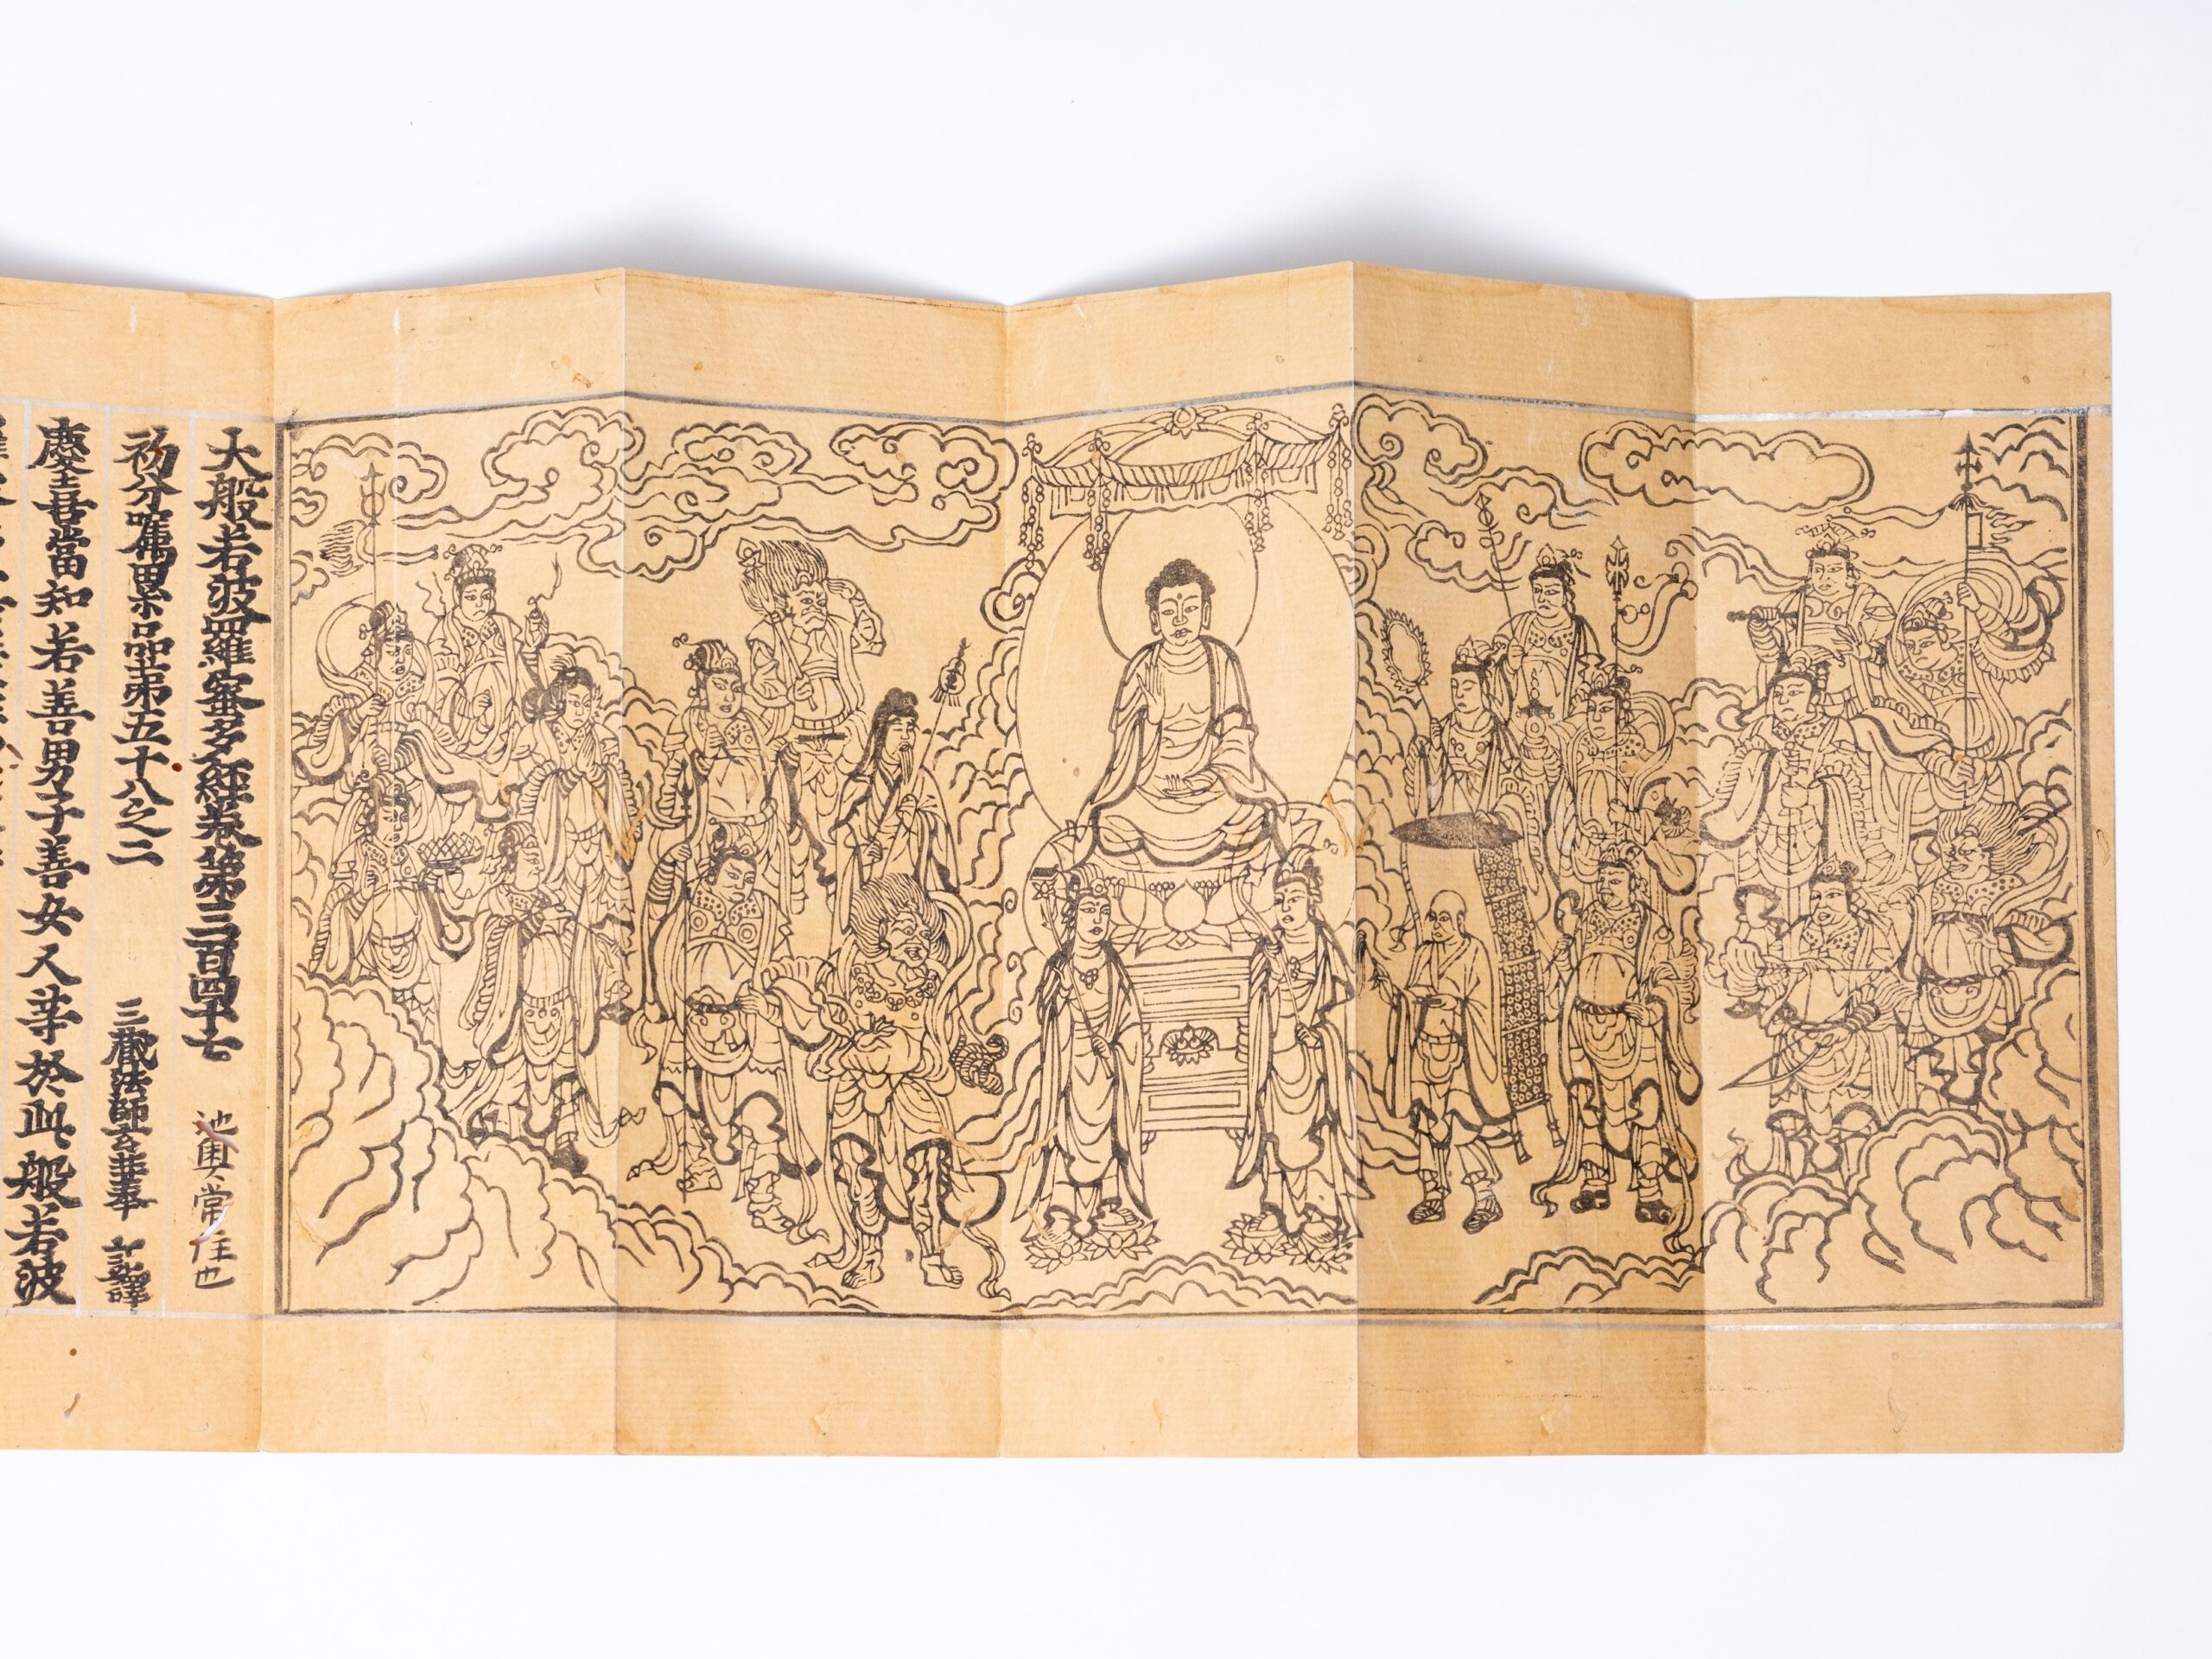 大般若波羅蜜多經卷第三百四十七 池奥常住也
初分囑累品第五十八之二 三藏法師玄奘奉 詔譯
慶喜當知若善男子善女人等於此般若波